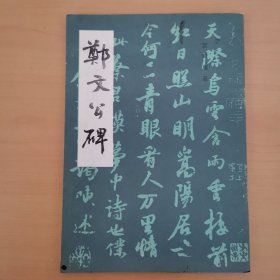 鄭文公碑
天際烏雲含雨重樓前
紅日照山明嵩陽居士
今何在青眼看人萬里情
蔡君謨夢中詩也僕
謁陳述